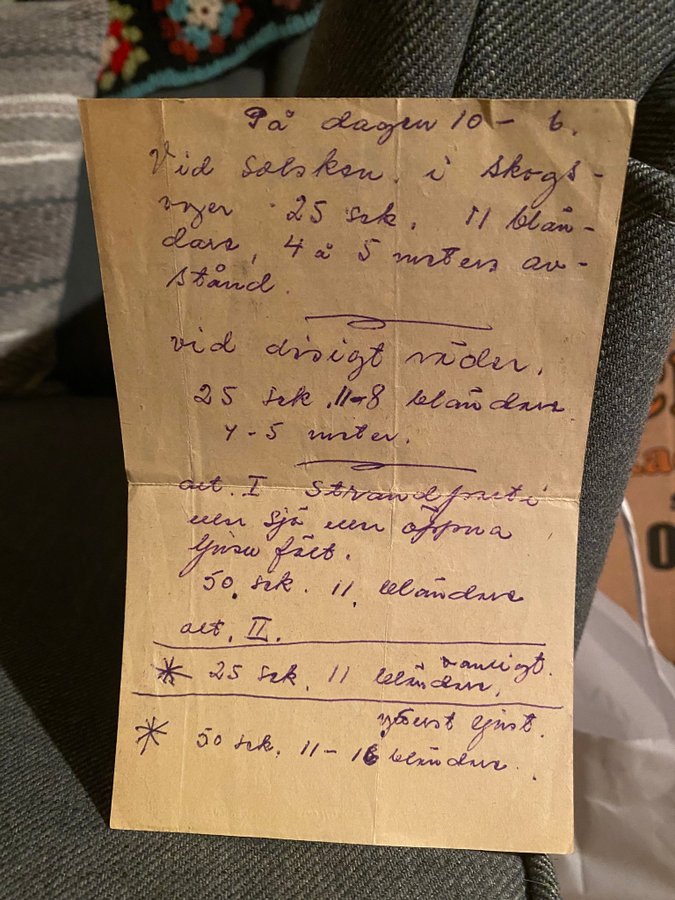 På dagen 10 - 6.
Vid solsken i skogs-
25 sek. 11 blän-
dare, 4 à 5 meters av-
stånd.
vid disigt väder,
25 sek. 11-8 bländare
4-5 meter.
alt. I
eller sjö eller öppna
ljusa fält.
50 sek. 11 bländare
alt. II.
vanligt.
* 25 sek. 11 bländare,
ljust.
* 50 sek. 11-16 bländare.